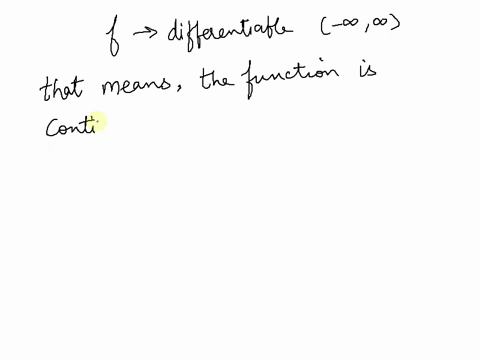 f → differentiable (-∞, ∞)
that means, the function is
Conti